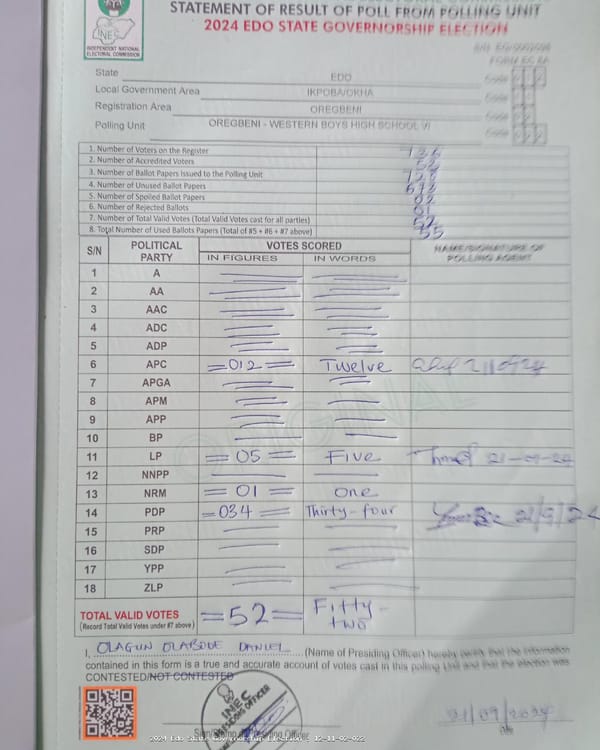 INEC
INDEPENDENT NATIONAL
ELECTORAL COMMISSION
STATEMENT OF RESULT OF POLL FROM POLLING UNIT
2024 EDO STATE GOVERNORSHIP ELECTION
FORM EC 8A
State EDO Code
Local Government Area IKPOBA/OKHA Code
Registration Area OREGBENI Code
Polling Unit OREGBENI - WESTERN BOYS HIGH SCHOOL VI Code
1. Number of Voters on the Register
2. Number of Accredited Voters 52
3. Number of Ballot Papers Issued to the Polling Unit
4. Number of Unused Ballot Papers
5. Number of Spoiled Ballot Papers 02
6. Number of Rejected Ballots 01
7. Number of Total Valid Votes (Total Valid Votes cast for all parties) 52
8. Total Number of Used Ballots Papers (Total of #5 + #6 + #7 above) 55
S/N POLITICAL PARTY VOTES SCORED NAME/SIGNATURE OF POLLING AGENT
IN FIGURES IN WORDS
1 A
2 AA
3 AAC
4 ADC
5 ADP
6 APC =012= Twelve
7 APGA
8 APM
9 APP
10 BP
11 LP =05= Five 21-09-24
12 NNPP
13 NRM =01= One
14 PDP =034= Thirty-four 21/9/24
15 PRP
16 SDP
17 YPP
18 ZLP
ORIGINAL
TOTAL VALID VOTES =52= Fifty-two
(Record Total Valid Votes under #7 above)
I, OLAGUN OLABODE DANIEL (Name of Presiding Officer) hereby certify that the information
contained in this form is a true and accurate account of votes cast in this polling Unit and that the election was
CONTESTED/NOT CONTESTED
INEC
PRESIDING OFFICER
21/09/2024
Presiding Officer
2024 Edo State Governorship Election : 12-11-02-022